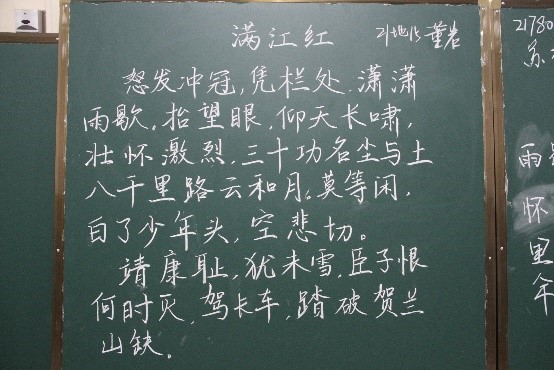 满江红 21地化 董岩
怒发冲冠,凭栏处.潇潇
雨歇,抬望眼,仰天长啸,
壮怀激烈,三十功名尘与土
八千里路云和月。莫等闲,
白了少年头,空悲切。
靖康耻,犹未雪,臣子恨
何时灭,驾长车,踏破贺兰
山缺。
21780
苏
雨
怀
里
年